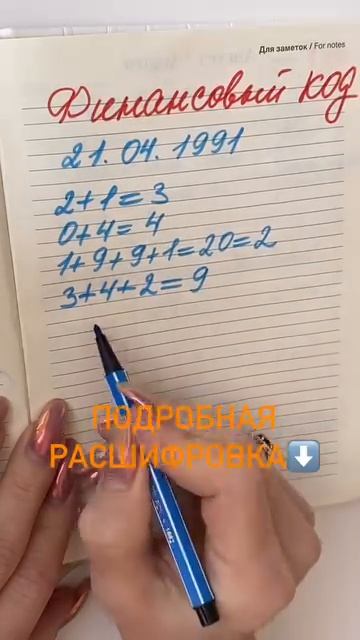 Для заметок / For notes
Финансовый код
21.04.1991
2+1=3
0+4=4
1+9+9+1=20=2
3+4+2=9
ПОДРОБНАЯ
РАСШИФРОВКА⬇️